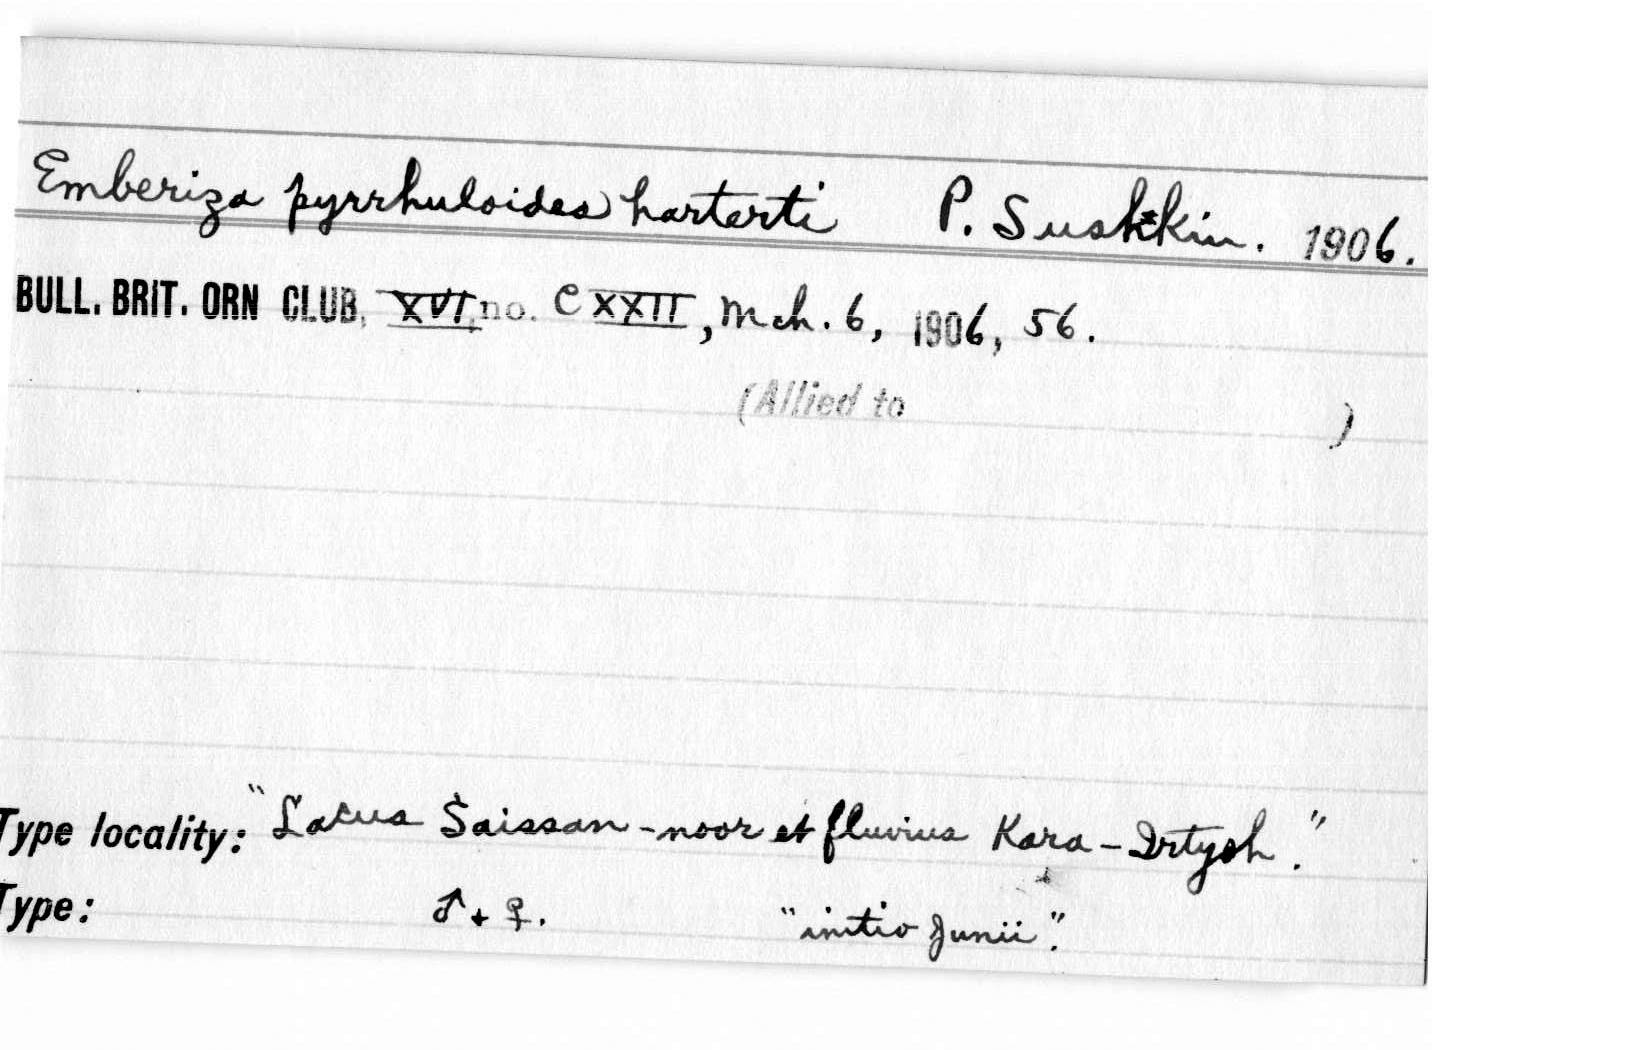 Emberiza pyrrhuloides harterti P. Sushkin. 1906.
BULL. BRIT. ORN CLUB, XVI, no. CXXII, Mch. 6, 1906, 56.
(Allied to )
Type locality: "Lacus Saissan-noor et fluvius Kara-Irtysh."
Type: ♂ + ♀. "initio Junii".